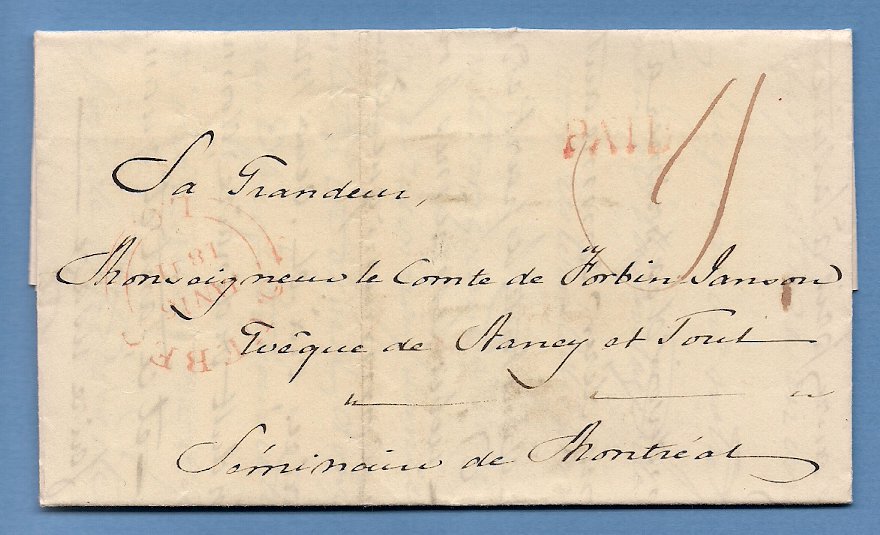 PAID
Sa Grandeur,
Monseigneur le Comte de Forbin Janson
Evêque de Nancy et Toul
Séminaire de Montréal